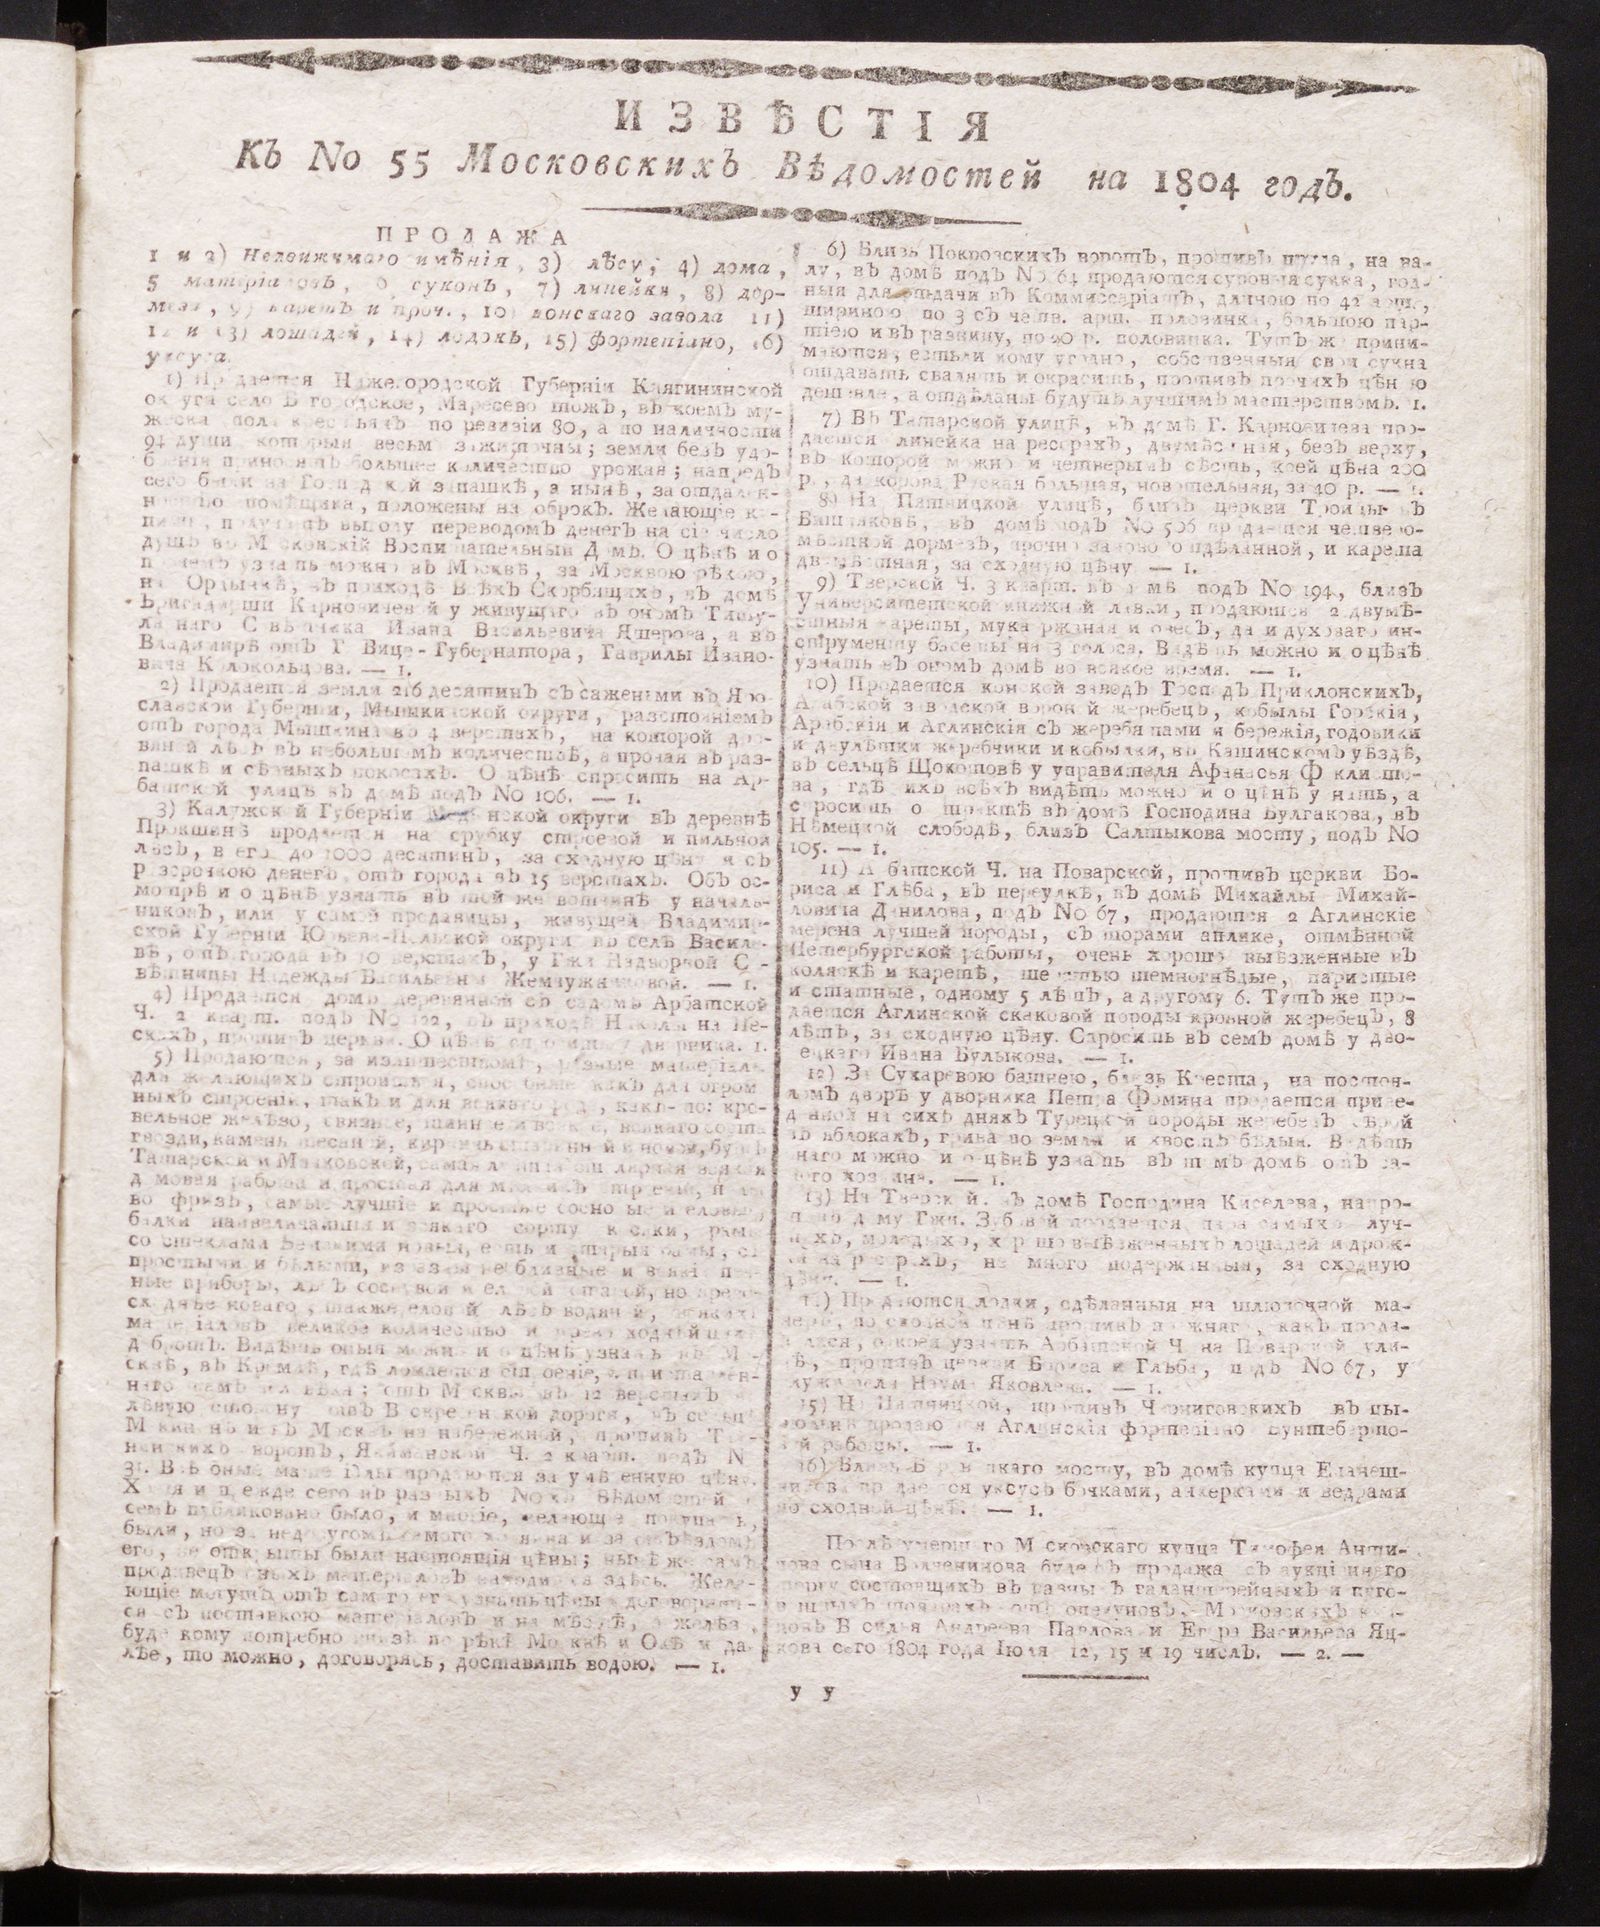 ИЗВѢСТІЯ
Къ No 55 Московскихъ Вѣдомостей на 1804 годъ.
ПРОДАЖА
1 и 2) Недвижимаго имѣнія, 3) лѣсу, 4) дома,
5 матеріаловъ, 6, суконъ, 7) линейки, 8) дор-
меза, 9) каретъ и проч., 10) конскаго завода 11)
12 и 13) лошадей, 14) лодокъ, 15) фортепіано, 16)
уксуса.
1) Продается Нижегородской Губерніи Княгининской
округи село Богородское, Маресево тожъ, въ коемъ му-
жеска пола крестьянъ по ревизіи 80, а по наличности
94 души, которыя весьма зажиточны; земли безъ удо-
бренія приносятъ большее количество урожая; напредъ
сего были на Господской запашкѣ, а нынѣ, за отдален-
ностію помѣщика, положены на оброкъ. Желающіе ку-
пить, получатъ выгоду переводомъ денегъ на сіе число
душъ въ Московскій Воспитательный Домъ. О цѣнѣ и о
прочемъ узнать можно въ Москвѣ, за Москвою рѣкою,
на Ордынкѣ, въ приходѣ Всѣхъ Скорбящихъ, въ домѣ
Бригадирши Карновичевой у живущаго въ ономъ Титу-
лярнаго Совѣтника Ивана Васильевича Яшерова, а въ
Владимирѣ отъ Г. Вице-Губернатора, Гаврилы Ивано-
вича Колокольцова. — 1.
2) Продается земли 216 десятинъ съ саженьми въ Яро-
славской Губерніи, Мышкинской округи, разстояніемъ
отъ города Мышкина въ 4 верстахъ, на которой дро-
вяной лѣсъ въ небольшомъ количествѣ, а прочая въ рас-
пашкѣ и сѣнныхъ покосахъ. О цѣнѣ спросить на Ар-
батской улицѣ въ домѣ подъ No 106. — 1.
3) Калужской Губерніи Медынской округи въ деревнѣ
Прокшинѣ продается на срубку строевой и пильной
лѣсъ, всего до 1000 десятинъ, за сходную цѣну и съ
разсрочкою денегъ, отъ города въ 15 верстахъ. Объ ос-
мотрѣ и о цѣнѣ узнать въ той же вотчинѣ у началь-
никовъ, или у самой продавицы, живущей Владимир-
ской Губерніи Юрьева-Польской округи въ селѣ Василе-
вѣ, отъ города въ 10 верстахъ, у Гжи Надворной Со-
вѣтницы Надежды Васильевны Жемчужниковой. — 1.
4) Продается домъ деревянной съ садомъ Арбатской
Ч. 2 кварт. подъ No 122, въ приходѣ Николы на Пе-
скахъ, противъ церкви. О цѣнѣ спросить у дворника. 1.
5) Продаются, за излишествомъ, разные матеріалы
для желающихъ строиться, способные какъ для огром
ныхъ строеній, такъ и для всякаго рода, какъ-то: кро-
вельное желѣзо, связное, шинное и всякое, всякаго сорта
гвозди, камень тесаной, кирпичь старинной и новой, бутъ
Татарской и Мячковской, самая лучшая столярная всякая
домовая работа и простая для мѣлкихъ строеній,
во фризъ, самые лучшіе и простые сосновые и еловые
балки наивеличайшія и всякаго сорту, рамы
со стеклами Бемскими новыя, есть и старыя рамы, съ
простыми и бѣлыми, изразцы необливные и всякіе печ-
ные приборы, лѣсъ сосновой и еловой старой, но прево-
сходнѣе новаго, также еловой лѣсъ водяной, всякихъ
матеріаловъ великое количество и превосходнѣйшихъ
добротъ. Видѣть оныя можно и о цѣнѣ узнать въ Мо-
сквѣ, въ Кремлѣ, гдѣ ломается строеніе, отъ приставлен-
наго тамъ человѣка; отъ Москвы въ 12 верстахъ на
лѣвую сторону отъ Воскресенской дороги, въ сельцѣ
Мякининѣ и въ Москвѣ на набережной, противъ Тай-
ницкихъ воротъ, Якиманской Ч. 2 кварт. подъ N
31. Всѣ оные матеріалы продаются за умѣренную цѣну.
Хотя и прежде сего въ разныхъ No хъ Вѣдомостей о
семъ публиковано было, и многіе, желающіе покупать,
были, но за недосугомъ самого хозяина и за отъѣздомъ
его, не открыты были настоящія цѣны; нынѣ же самъ
продавецъ оныхъ матеріаловъ находится здѣсь. Жела-
ющіе могутъ отъ самого его узнать цѣны и договорить-
ся съ поставкою матеріаловъ и на мѣстѣ, а желѣза,
буде кому потребно внизъ по рѣкѣ Москвѣ и Окѣ и да-
лѣе, то можно, договорясь, доставить водою. — 1.
6) Близь Покровскихъ воротъ, противъ пруда, на ва-
лу, въ домѣ подъ No 64 продаются суровыя сукна, год-
ныя для отдачи въ Коммиссаріатъ, длиною по 42 арш.,
шириною по 3 съ четв. арш. половинка, большою пар-
тіею и въ разницу, по 20 р. половинка. Тутъ же прини-
маются, естьли кому угодно, собственныя свои сукна
отдавать свалять и окрасить, противъ прочихъ цѣною
дешевле, а отдѣланы будутъ лучшимъ мастерствомъ. 1.
7) Въ Татарской улицѣ, въ домѣ Г. Карновичева про-
дается линейка на ресорахъ, двумѣстная, безъ верху,
въ которой можно и четверымъ сѣсть, коей цѣна 200
р., да корова Руская большая, новотельная, за 40 р. — 1.
8) На Пятницкой улицѣ, близь церкви Троицы въ
Вишняковѣ, въ домѣ подъ No 506 продается четверо-
мѣстной дормезъ, прочно заново отдѣланной, и карета
двумѣстная, за сходную цѣну. — 1.
9) Тверской Ч. 3 кварт. въ домѣ подъ No 194, близь
Университетской книжной лавки, продаются 2 двумѣ-
стныя кареты, мука ржаная и овесъ, да и духоваго ин-
струменту басеты на 3 голоса. Видѣть можно и о цѣнѣ
узнать въ ономъ домѣ во всякое время. — 1.
10) Продается конской заводъ Господъ Приклонскихъ,
Арабской заводской вороной жеребецъ, кобылы Горскія,
Арабскія и Аглинскія съ жеребятами и бережія, годовики
и двулѣтки жеребчики и кобылки, въ Кашинскомъ уѣздѣ,
въ сельцѣ Щокотовѣ у управителя Афанасья Ф клисто-
ва, гдѣ ихъ всѣхъ видѣть можно и о цѣнѣ узнать, а
спросить о трактѣ въ домѣ Господина Булгакова, въ
Нѣмецкой слободѣ, близь Салтыкова мосту, подъ No
105. — 1.
11) Арбатской Ч. на Поварской, противъ церкви Бо-
риса и Глѣба, въ переулкѣ, въ домѣ Михайлы Михай-
ловича Данилова, подъ No 67, продаются 2 Аглинскіе
мерена лучшей породы, съ шорами аплике, отмѣнной
Петербургской работы, очень хорошо выѣзженные въ
коляскѣ и каретѣ, шерстью темногнѣдые, паристые
и статные, одному 5 лѣтъ, а другому 6. Тутъ же про-
дается Аглинской скаковой породы кровной жеребецъ, 8
лѣтъ, за сходную цѣну. Спросить въ семъ домѣ у дво-
рецкаго Ивана Булыкова. — 1.
12) За Сухаревою башнею, близь Креста, на постоя-
ломъ дворѣ у дворника Петра Фомина продается приве-
денной на сихъ дняхъ Турецкой породы жеребецъ сѣрой
въ яблокахъ, грива до земли и хвостъ бѣлыя. Видѣть
онаго можно и о цѣнѣ узнать въ томъ домѣ отъ са-
мого хозяина. — 1.
13) На Тверской, въ домѣ Господина Киселева, напро-
тиво дому Гжи. Зубовой продается пара самыхъ луч-
шихъ, молодыхъ, хорошо выѣзженныхъ лошадей и дрож-
ки на ресорахъ, не много подержанныя, за сходную
цѣну. — 1.
14) Продаются лодки, сдѣланныя на шлюпочной ма-
неръ, по сходной цѣнѣ противъ прежняго, какъ прода-
вались, о коей узнать Арбатской Ч. на Поварской ули-
цѣ, противъ церкви Бориса и Глѣба, подъ No 67, у
служителя Наума Яковлева. — 1.
15) На Пятницкой, противъ Черниговскихъ въ пы-
продаются Аглинскія фортепіано Бунтебарто-
вой работы. — 1.
16) Близь Боровицкаго мосту, въ домѣ купца Епанеш-
никова продается уксусъ бочками, анкерками и ведрами
по сходной цѣнѣ. — 1.
Послѣ умершаго Московскаго купца Тимофея Анти-
пова сына Волченинова будетъ продажа съ аукціоннаго
торгу состоящихъ въ разныхъ галантерейныхъ и пуго-
вишныхъ товарахъ отъ опекуновъ, Московскихъ куп-
цовъ Василья Андреева Павлова и Егора Васильева Яц-
кова сего 1804 года Іюля 12, 15 и 19 числъ. — 2. —
У у